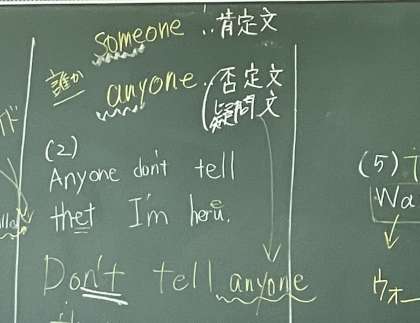 someone ∴肯定文
誰か
anyone ∴否定文
疑問文
(2)
Anyone don't tell
thet I'm here.
Don't tell anyone
(5)
Wa
ウォー